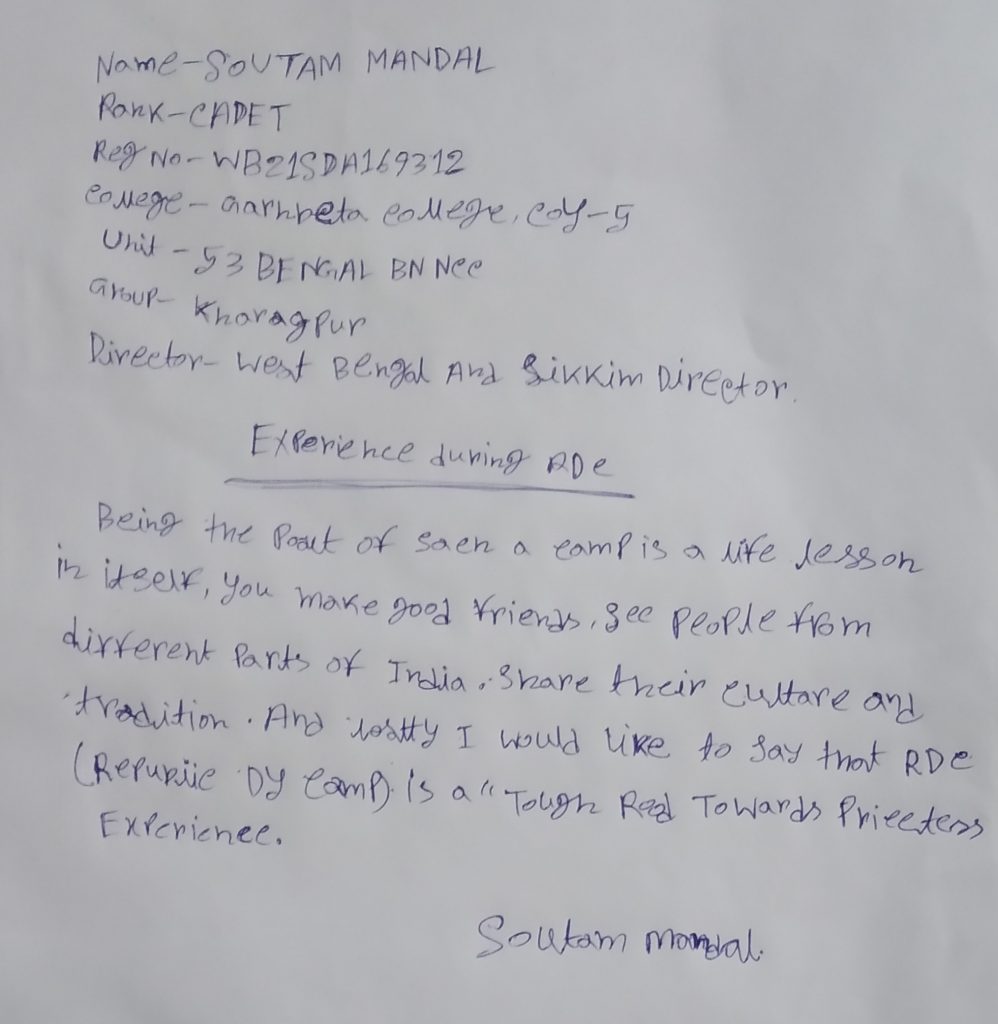 Name-SOUTAM MANDAL
Rank-CADET
Reg No- WB21SDA169312
College- Garhbeta College, Coy-5
Unit - 53 BENGAL BN NCC
Group- Kharagpur
Director- West Bengal And Sikkim Director.
Experience during RDC
Being the Paart of Such a camp is a life lesson
in itself, you make good friends, See People from
different Parts of India. Share their culture and
tradition. And lastly I would like to Say that RDC
(Republic Dy Camp) is a "Tough Road Towards
Experience.
Soutam Mandal.